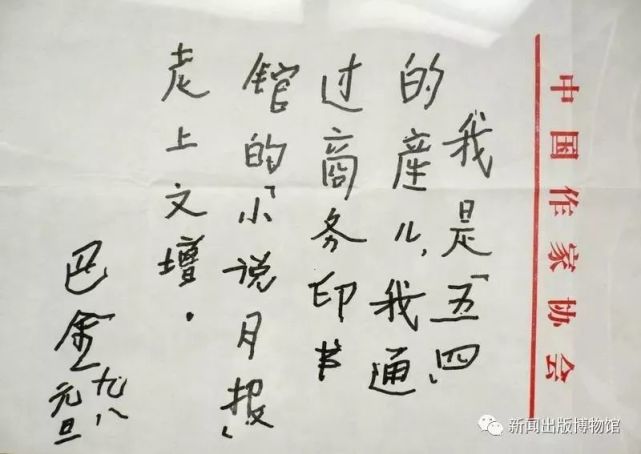 中国作家协会
我是「五四」
的産儿,我通
过商务印书
馆的「小说月报」
走上文壇.
巴金
九八
元旦
新闻出版博物馆